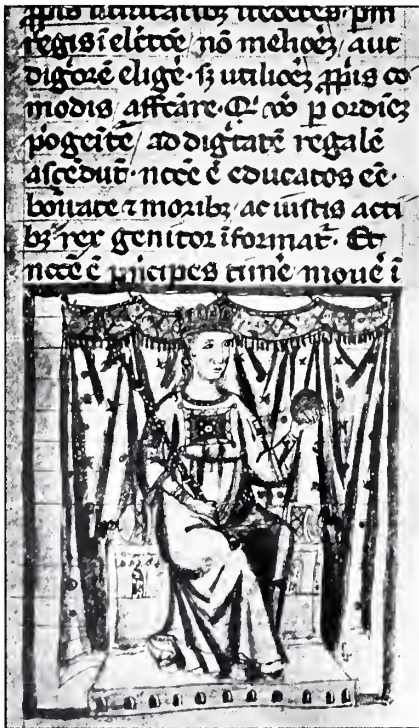 regis ī elc̄tōe, nō meliorē aut
digiorē elige· sꝫ utiliorē ꝓpis co
modis affc̄are· Q̇ v͛o p ordiēꝫ
ad diḡtatē regalē
ascēdūt· ncc̄ē ē educatos eē·
bōitate ⁊ moribꝫ, ac iustis acti
bꝫ rex genitor īformat· Et
ncc̄ē ē p̄ncipes timē mouē ī